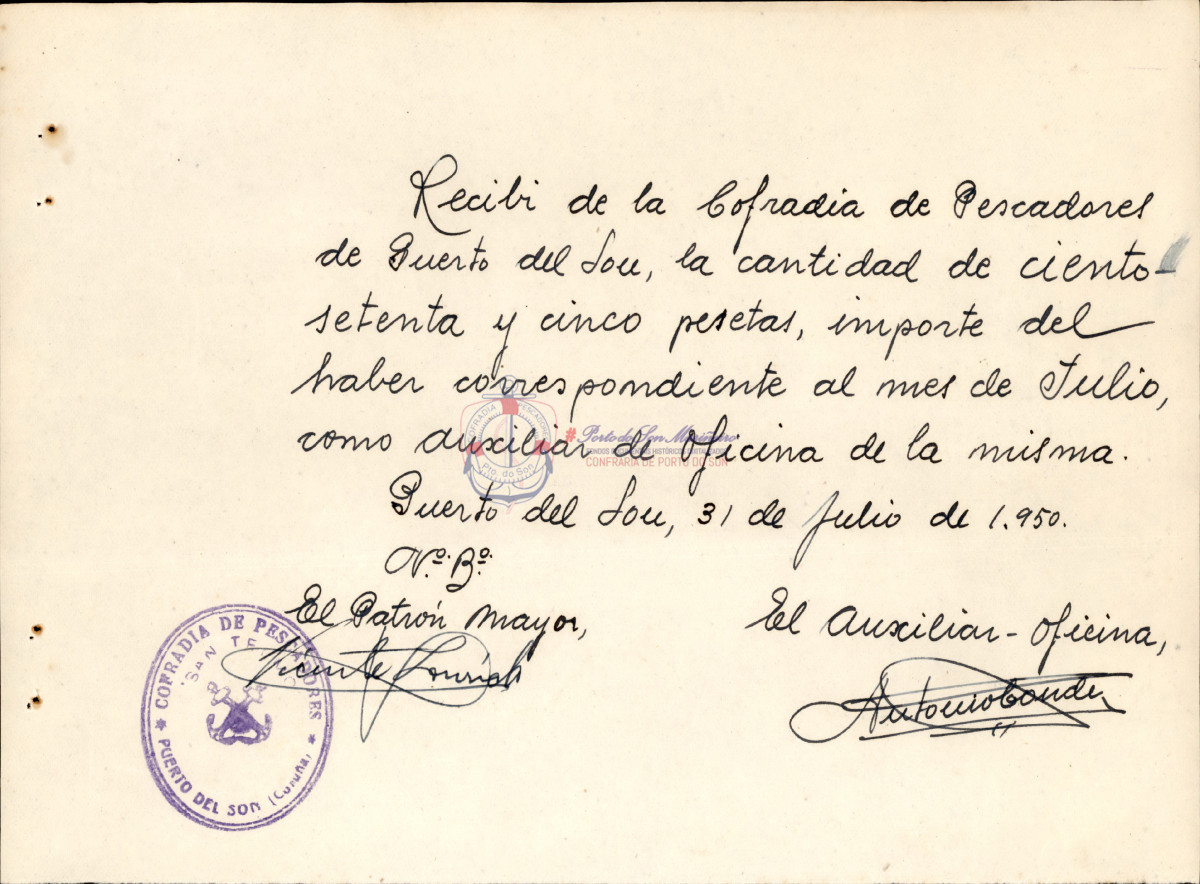 Recibi de la Cofradia de Pescadores
de Puerto del Son, la cantidad de ciento-
setenta y cinco pesetas, importe del
haber correspondiente al mes de Julio,
como auxiliar de oficina de la misma.
Puerto del Son, 31 de julio de 1.950.
Vº. Bº.
El Patrón Mayor,
El Auxiliar-Oficina,
Vicente
Antonio Conde
COFRADIA DE PESCADORES
SAN TELMO
PUERTO DEL SON (Coruña)
COFRADIA PESCADORES
Pto. do Son
#Porto do Son Mariñeiro
CONFRARIA DE PORTO DO SON